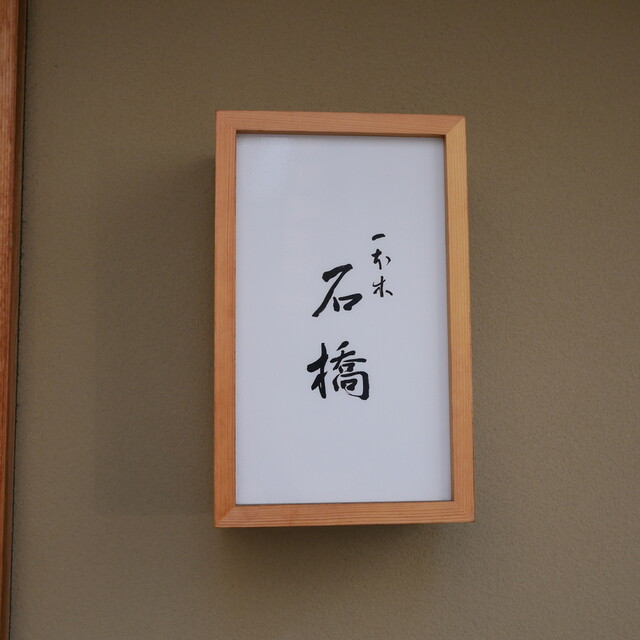 一本木
石橋